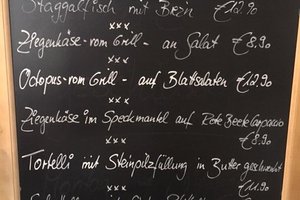 mit € 12.90
xxx
Ziegenkäse vom Grill - an Salat € 8.90
xxx
Octopus vom Grill - auf Blattsalaten € 12.90
xxx
Ziegenkäse im Speckmantel auf Rote Beete Carpaccio
xxx € 8.90
Tortelli mit Steinpilzfüllung in Butter geschwenkt
xxx € 11.90